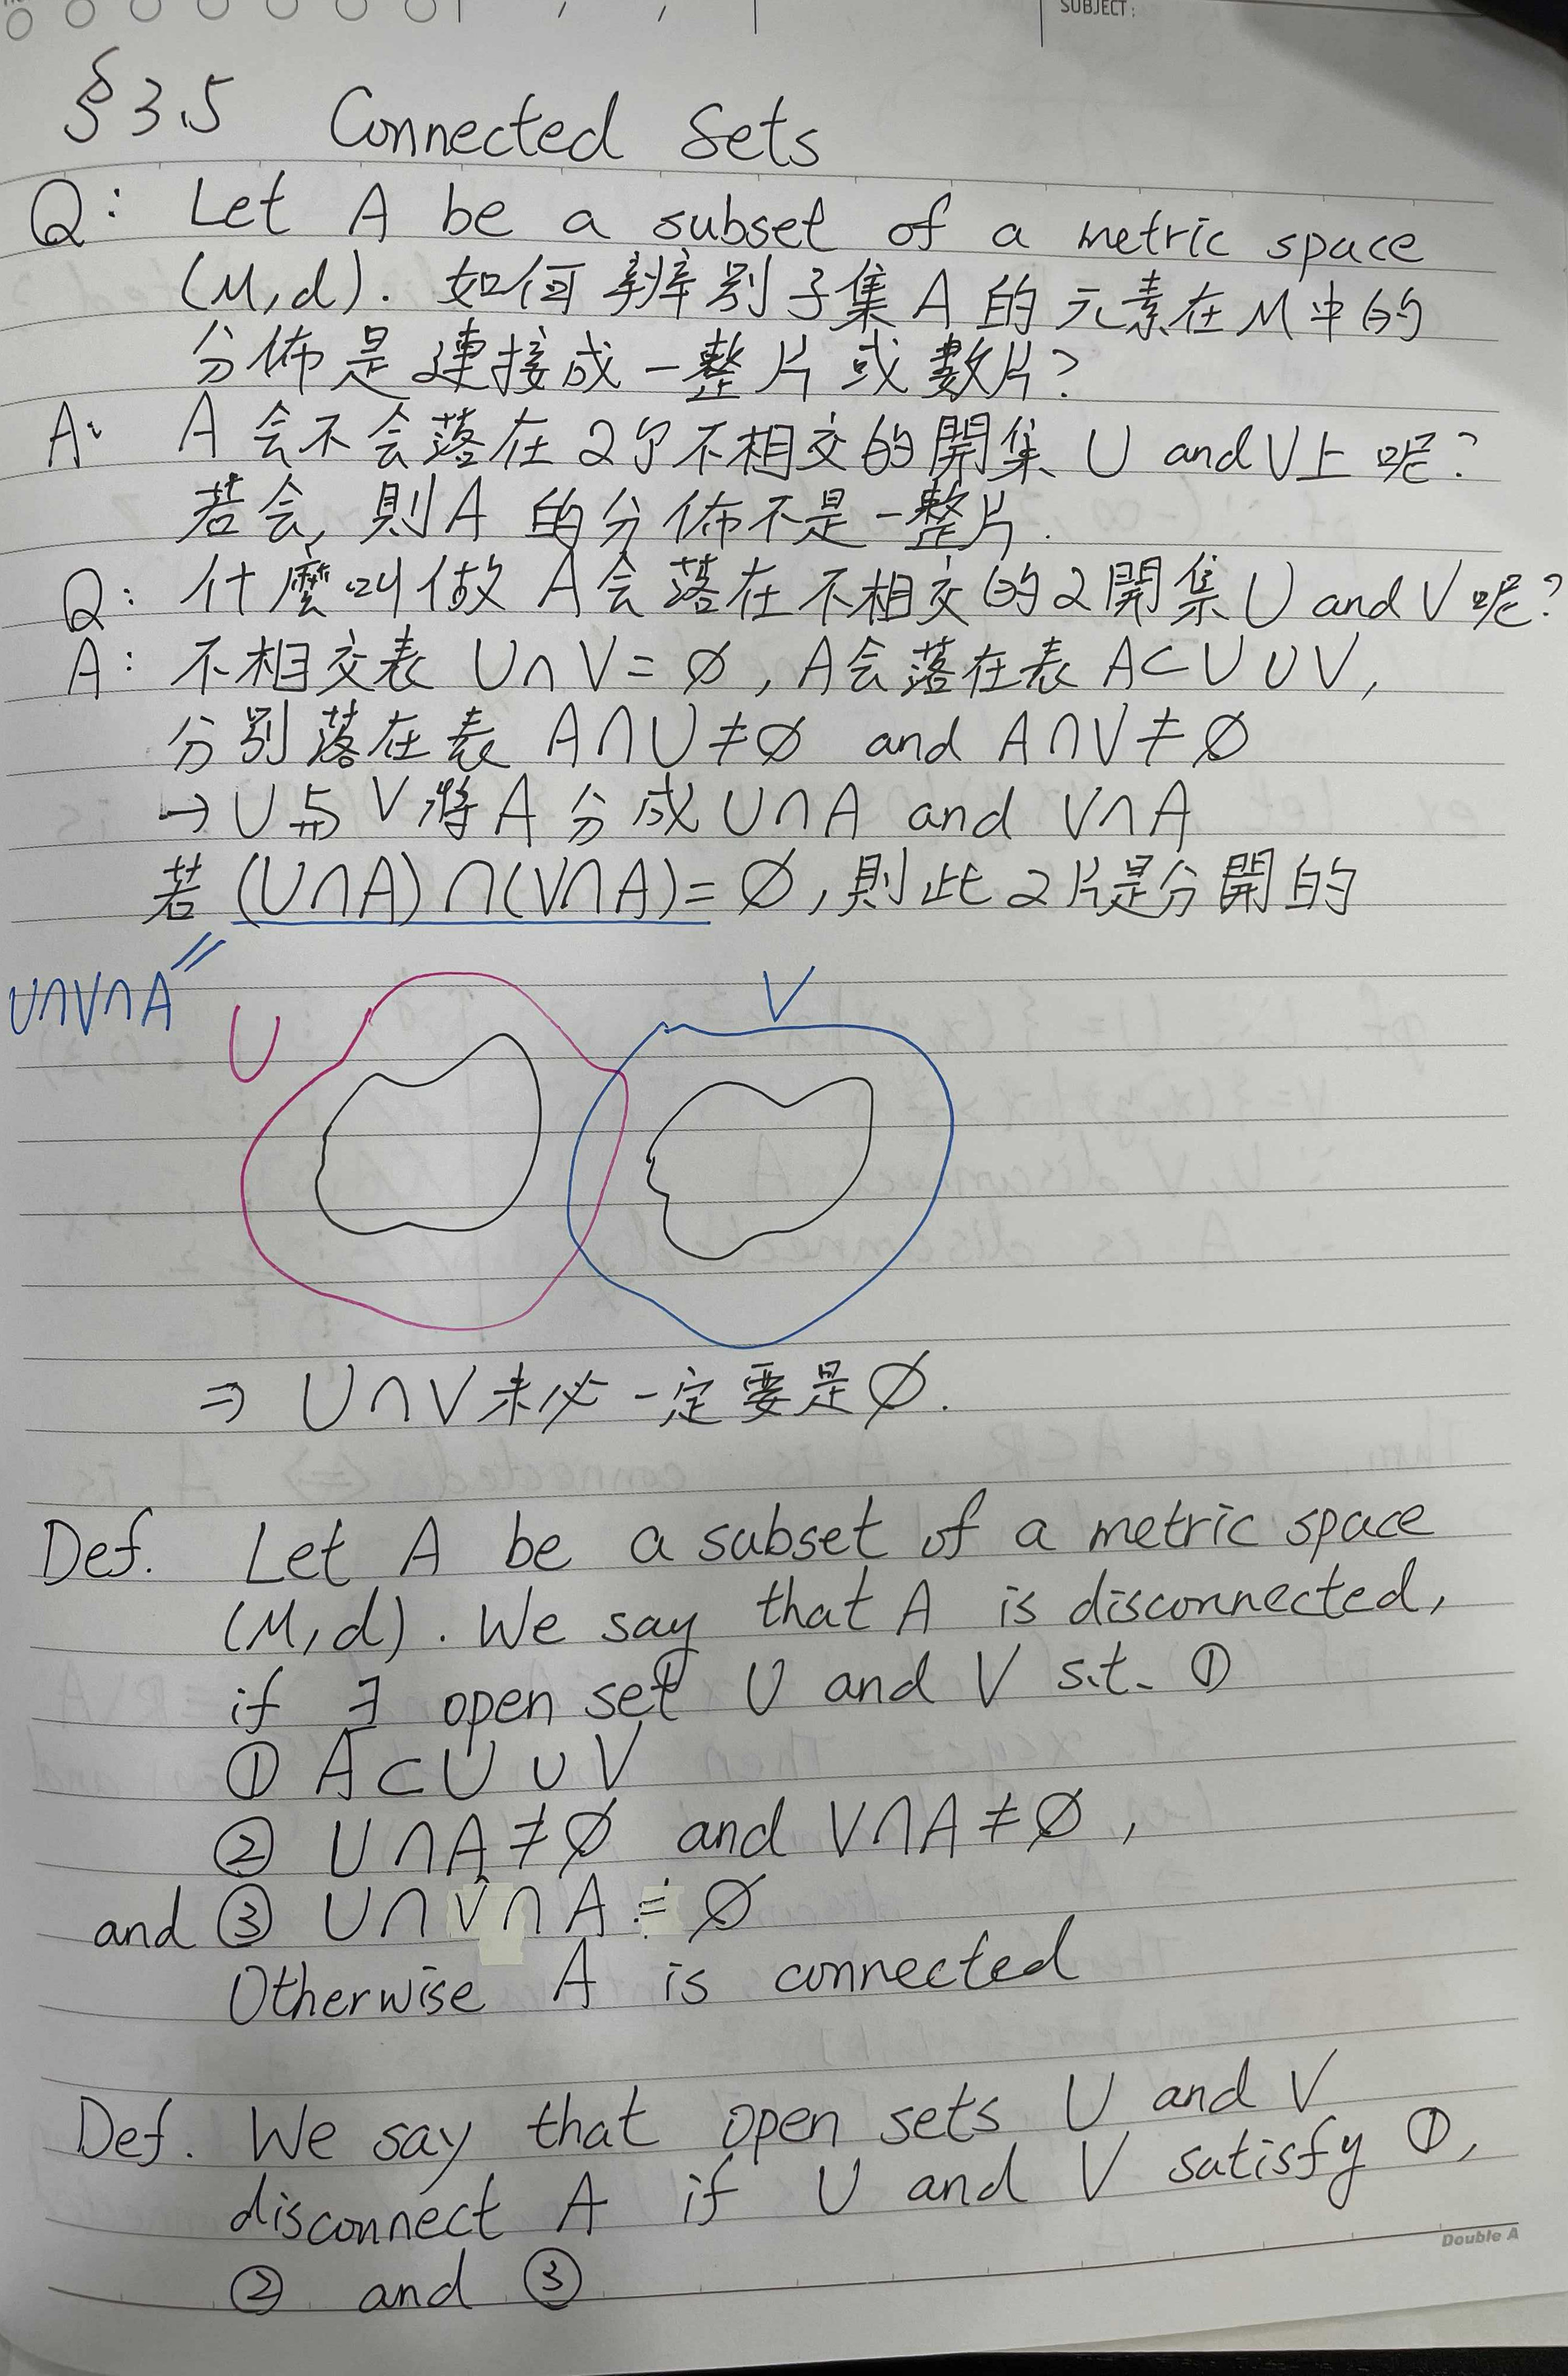 SUBJECT:
§3.5 Connected Sets
Q: Let A be a subset of a metric space
(M,d). 如何辨別子集A的元素在M中的
分佈是連接成一整片或數片?
A: A会不会落在2个不相交的開集 U and V上呢?
若会, 則A的分佈不是一整片.
Q: 什麼叫做A会落在不相交的2開集U and V呢?
A: 不相交表 U∩V=∅, A会落在表 A⊂U∪V,
分別落在表 A∩U≠∅ and A∩V≠∅
→U与V将A分成U∩A and V∩A
若 (U∩A)∩(V∩A)=∅, 則此2片是分開的
U∩V∩A
U
V
⇒ U∩V未必一定要是∅.
Def. Let A be a subset of a metric space
(M,d). We say that A is disconnected,
if ∃ open set U and V s.t. ①
① A⊂U∪V
② U∩A≠∅ and V∩A≠∅,
and ③ U∩V∩A=∅
Otherwise A is connected
Def. We say that open sets U and V
disconnect A if U and V satisfy ①,
② and ③
Double A